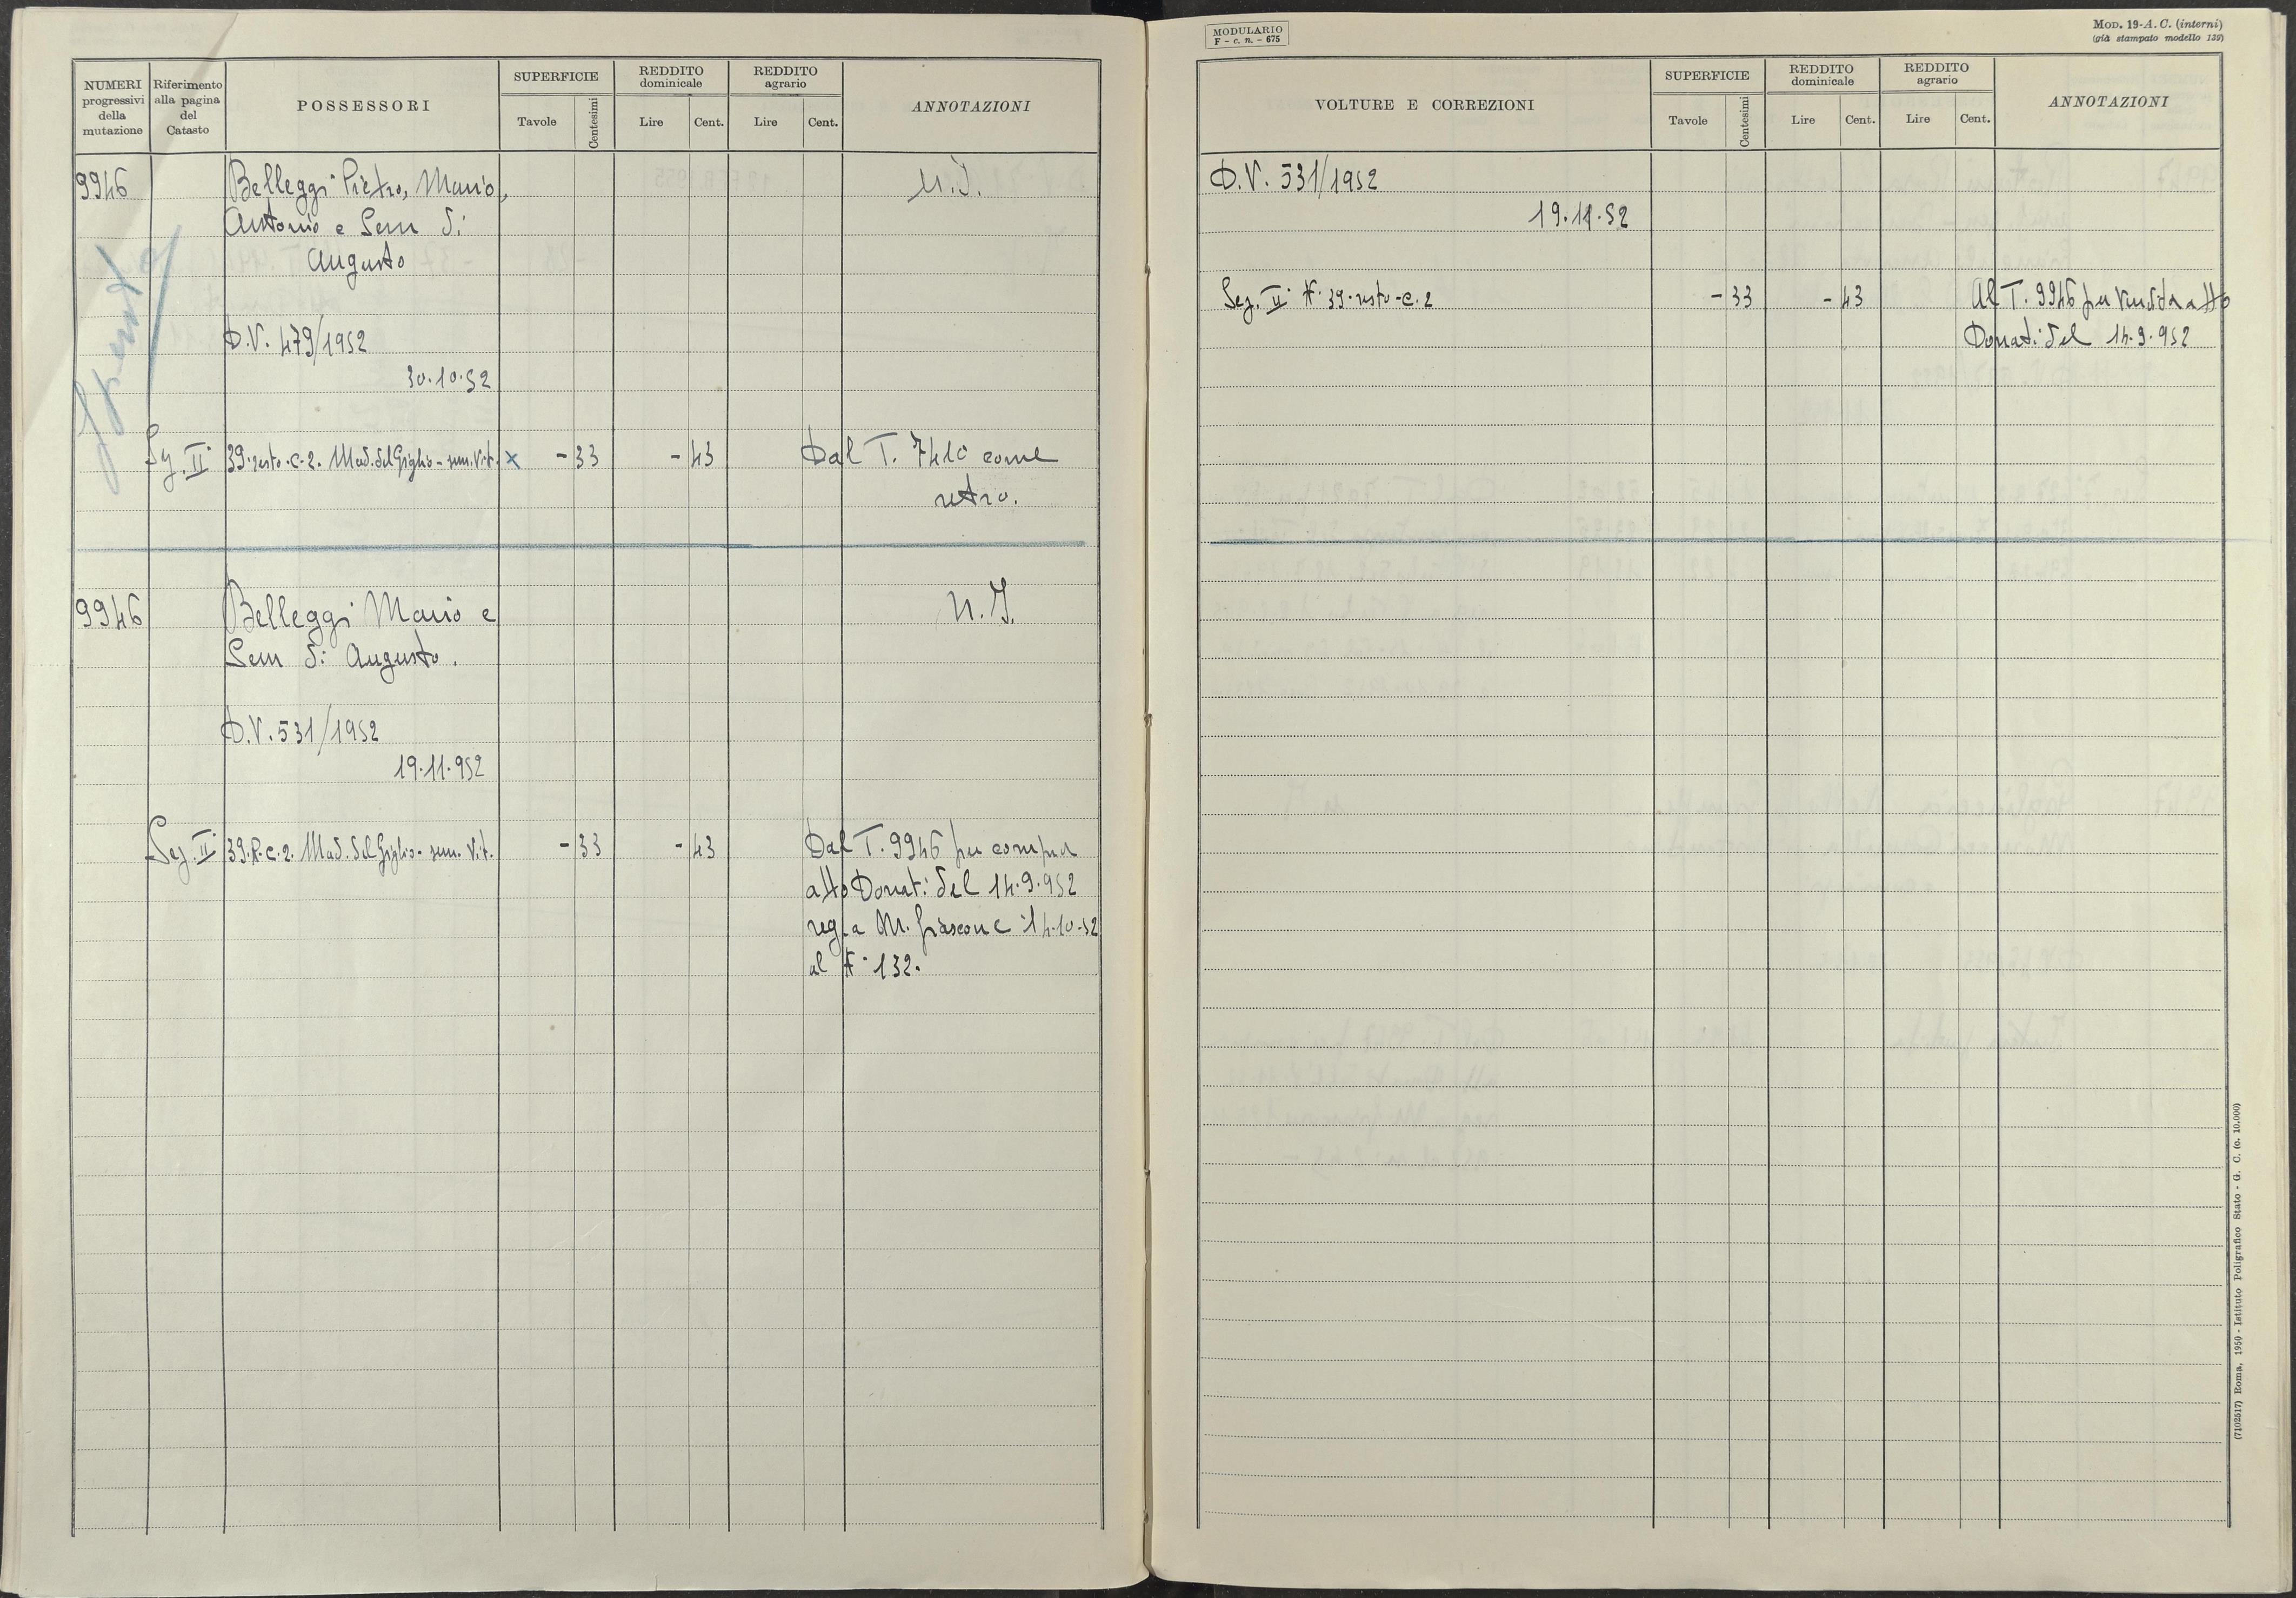 NUMERI progressivi della mutazione
Riferimento alla pagina del Catasto
POSSESSORI
SUPERFICIE
Tavole
Centesimi
REDDITO dominicale
Lire
Cent.
REDDITO agrario
Lire
Cent.
ANNOTAZIONI
9946
Belleggi Pietro, Mario,
N.I.
Antonio e Sem di
Augusto
Spenta
D.V. 479/1952
30.10.52
Sez. II 39.resto.c.2. Mad. del Giglio - sem. vit. x - 33 - 43 Dal T. 7410 come
retro.
9946
Belleggi Mario e
N.I.
Sem di Augusto.
D.V. 531/1952
19.11.952
Sez. II 39.R.c.2. Mad. del Giglio - sem. vit. - 33 - 43 Dal T. 9946 per compra
atto Donati del 14.9.952
reg. a M. Fiascone il 4.10.52
al N° 132.
MODULARIO
F - c. n. - 675
MOD. 19-A. C. (interni)
(già stampato modello 139)
VOLTURE E CORREZIONI
SUPERFICIE
Tavole
Centesimi
REDDITO dominicale
Lire
Cent.
REDDITO agrario
Lire
Cent.
ANNOTAZIONI
D.V. 531/1952
19.11.52
Sez. II N° 39.resto-c.2 - 33 - 43 Al T. 9946 per vendita atto
Donati del 14.9.952
(7102517) Roma, 1950 - Istituto Poligrafico Stato - G. C. (c. 10.000)